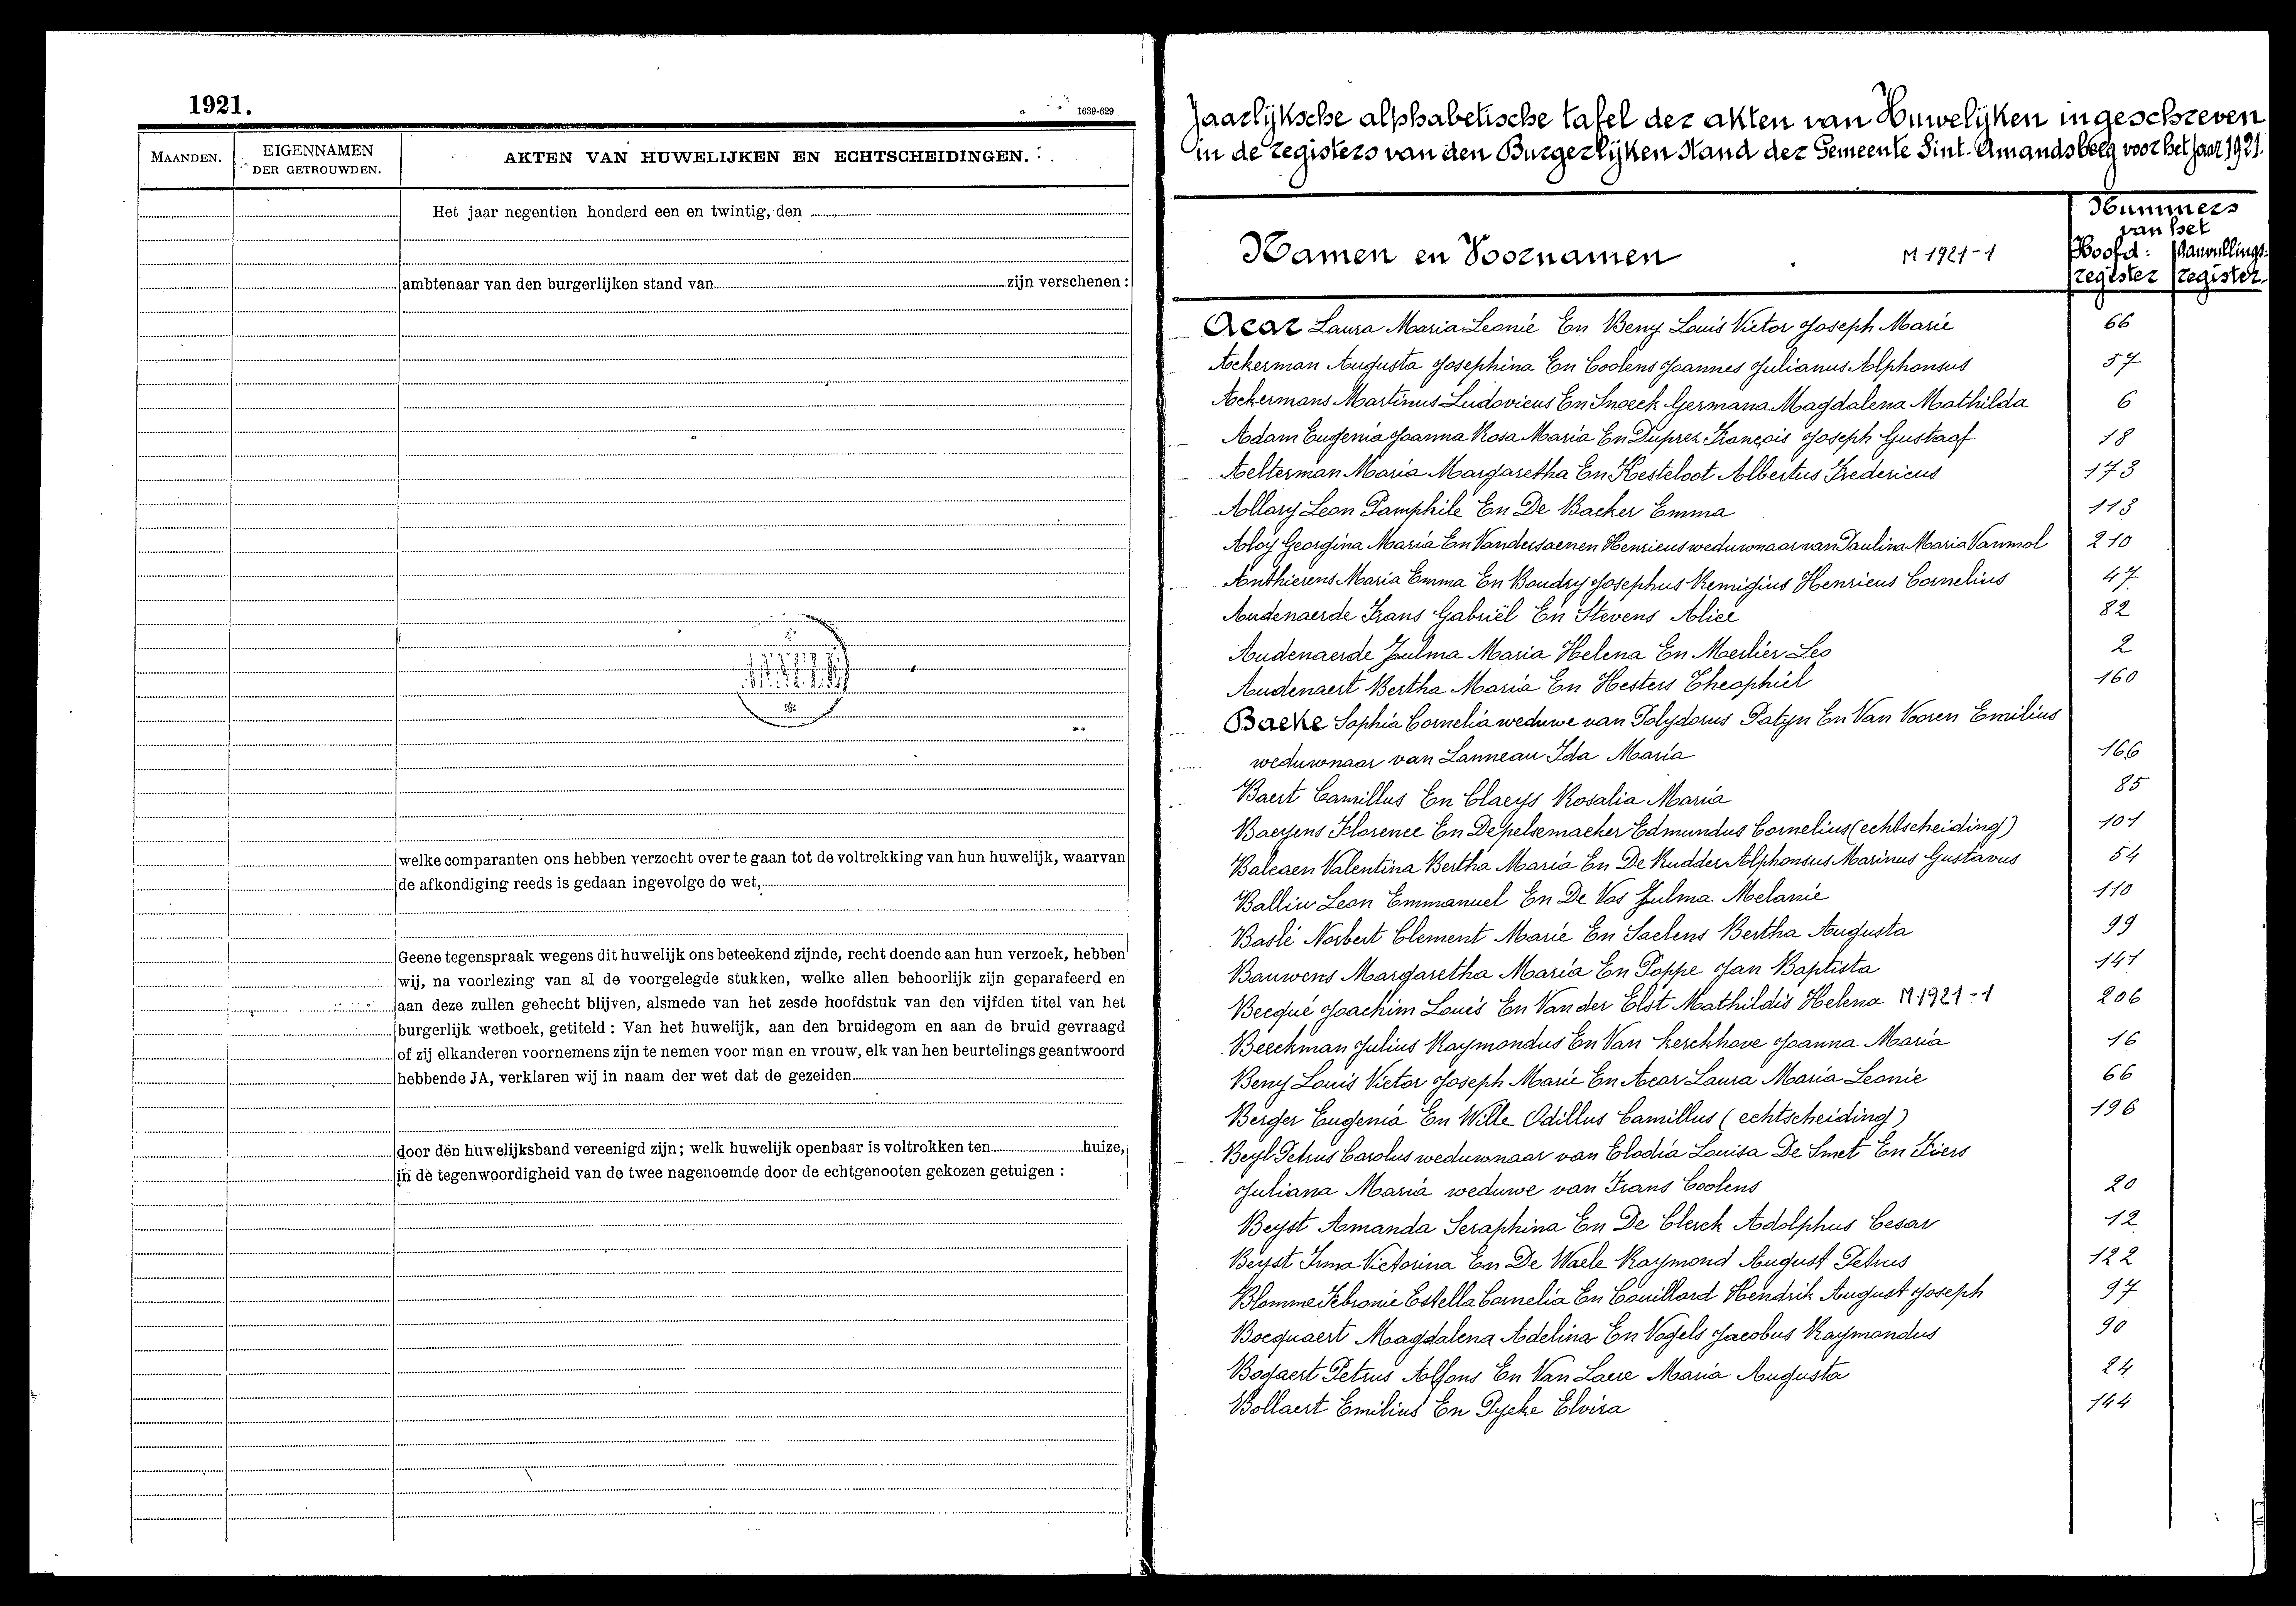 1921.
1639-629
MAANDEN.
EIGENNAMEN
DER GETROUWDEN.
AKTEN VAN HUWELIJKEN EN ECHTSCHEIDINGEN.
Het jaar negentien honderd een en twintig, den
ambtenaar van den burgerlijken stand van zijn verschenen :
welke comparanten ons hebben verzocht over te gaan tot de voltrekking van hun huwelijk, waarvan
de afkondiging reeds is gedaan ingevolge de wet,
Geene tegenspraak wegens dit huwelijk ons beteekend zijnde, recht doende aan hun verzoek, hebben
wij, na voorlezing van al de voorgelegde stukken, welke allen behoorlijk zijn geparafeerd en
aan deze zullen gehecht blijven, alsmede van het zesde hoofdstuk van den vijfden titel van het
burgerlijk wetboek, getiteld : Van het huwelijk, aan den bruidegom en aan de bruid gevraagd
of zij elkanderen voornemens zijn te nemen voor man en vrouw, elk van hen beurtelings geantwoord
hebbende JA, verklaren wij in naam der wet dat de gezeiden
door den huwelijksband vereenigd zijn ; welk huwelijk openbaar is voltrokken ten huize,
in de tegenwoordigheid van de twee nagenoemde door de echtgenooten gekozen getuigen :
Jaarlijksche alphabetische tafel der akten van Huwelijken ingeschreven
in de registers van den Burgerlijken Stand der Gemeente Sint-Amandsberg voor het jaar 1921.
Namen en Voornamen M 1921-1
Nummers
van het
Hoofd: Aanvullings:
register register
Acar Laura Maria Leonie En Beny Louis Victor Joseph Marie 66
Ackerman Augusta Josephina En Coolens Joannes Julianus Alphonsus 57
Ackermans Martinus Ludovicus En Snoeck Germana Magdalena Mathilda 6
Adam Eugenia Joanna Rosa Maria En Duprez François Joseph Gustaaf 18
Aelterman Maria Margaretha En Kesteloot Albertus Fredericus 173
Allary Leon Pamphile En De Backer Emma 113
Aloÿ Georgina Maria En Vandersaenen Henricus weduwnaar van Paulina Maria Vanmol 210
Anthierens Maria Emma En Baudry Josephus Remigius Henricus Cornelius 47
Audenaerde Frans Gabriël En Stevens Alice 82
Audenaerde Zulma Maria Helena En Merlier Leo 2
Audenaert Bertha Maria En Hesters Theophiel 160
Baeke Sophia Cornelia weduwe van Polydorus Patyn En Van Vooren Emilius
weduwnaar van Lanneau Ida Maria 166
Baert Camillus En Claeys Rosalia Maria 85
Baeyens Florence En Depelsemaeker Edmundus Cornelius (echtscheiding) 101
Balcaen Valentina Bertha Maria En De Rudder Alphonsus Marinus Gustavus 54
Balliu Leon Emmanuel En De Vos Zulma Melanie 110
Baslé Norbert Clement Marie En Saelens Bertha Augusta 99
Bauwens Margaretha Maria En Poppe Jan Baptista 141
Becqué Joachim Louis En Van der Elst Mathildis Helena M 1921-1 206
Beeckman Julius Raymondus En Van Kerchhove Joanna Maria 16
Beny Louis Victor Joseph Marie En Acar Laura Maria Leonie 66
Berger Eugenia En Wille Odillus Camillus (echtscheiding) 196
Beyl Petrus Carolus weduwnaar van Elodia Louisa De Smet En Fiers
Juliana Maria weduwe van Frans Coolens 20
Beyst Amanda Seraphina En De Clerck Adolphus Cesar 12
Beyst Irma Victorina En De Waele Raymond August Petrus 122
Blomme Febronie Estella Cornelia En Couillard Hendrik August Joseph 97
Bocquaert Magdalena Adelina En Vogels Jacobus Raymondus 90
Bogaert Petrus Alfons En Van Laere Maria Augusta 24
Bollaert Emilius En Pycke Elvira 144